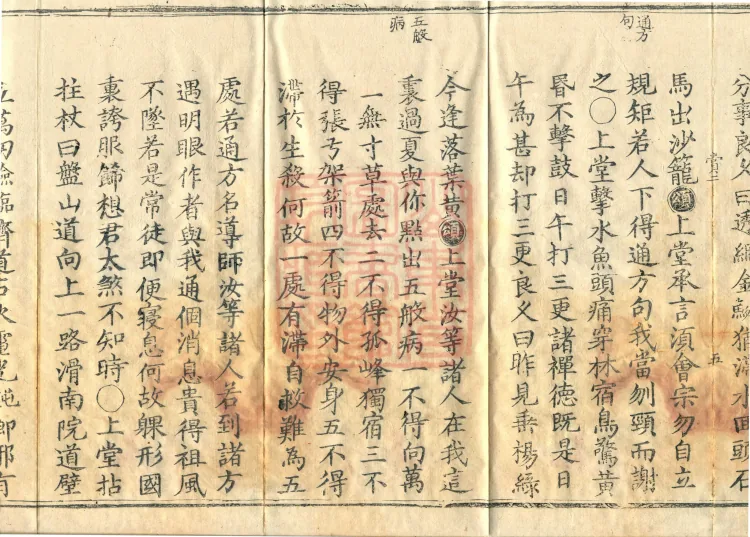 通方句
分事良久曰透網金鱗猶滯水回頭石
五
馬出沙籠頌上堂承言須會宗勿自立
規矩若人下得通方句我當刎頸而謝
之○上堂擊水魚頭痛穿林宿鳥驚黃
昏不擊鼓日午打三更諸禪德既是日
午為甚却打三更良久曰昨見垂楊綠
五般病
今逢落葉黃頌上堂汝等諸人在我這
裏過夏與你點出五般病一不得向萬
一無寸草處去二不得孤峰獨宿三不
得張弓架箭四不得物外安身五不得
滯於生殺何故一處有滯自救難為五
處若通方名導師汝等諸人若到諸方
遇明眼作者與我通個消息貴得祖風
不墜若是常徒即便寢息何故躶形國
裏誇服飾想君太煞不知時○上堂拈
拄杖曰盤山道向上一路滑南院道壁
立萬仞險臨濟道石火電光鈍